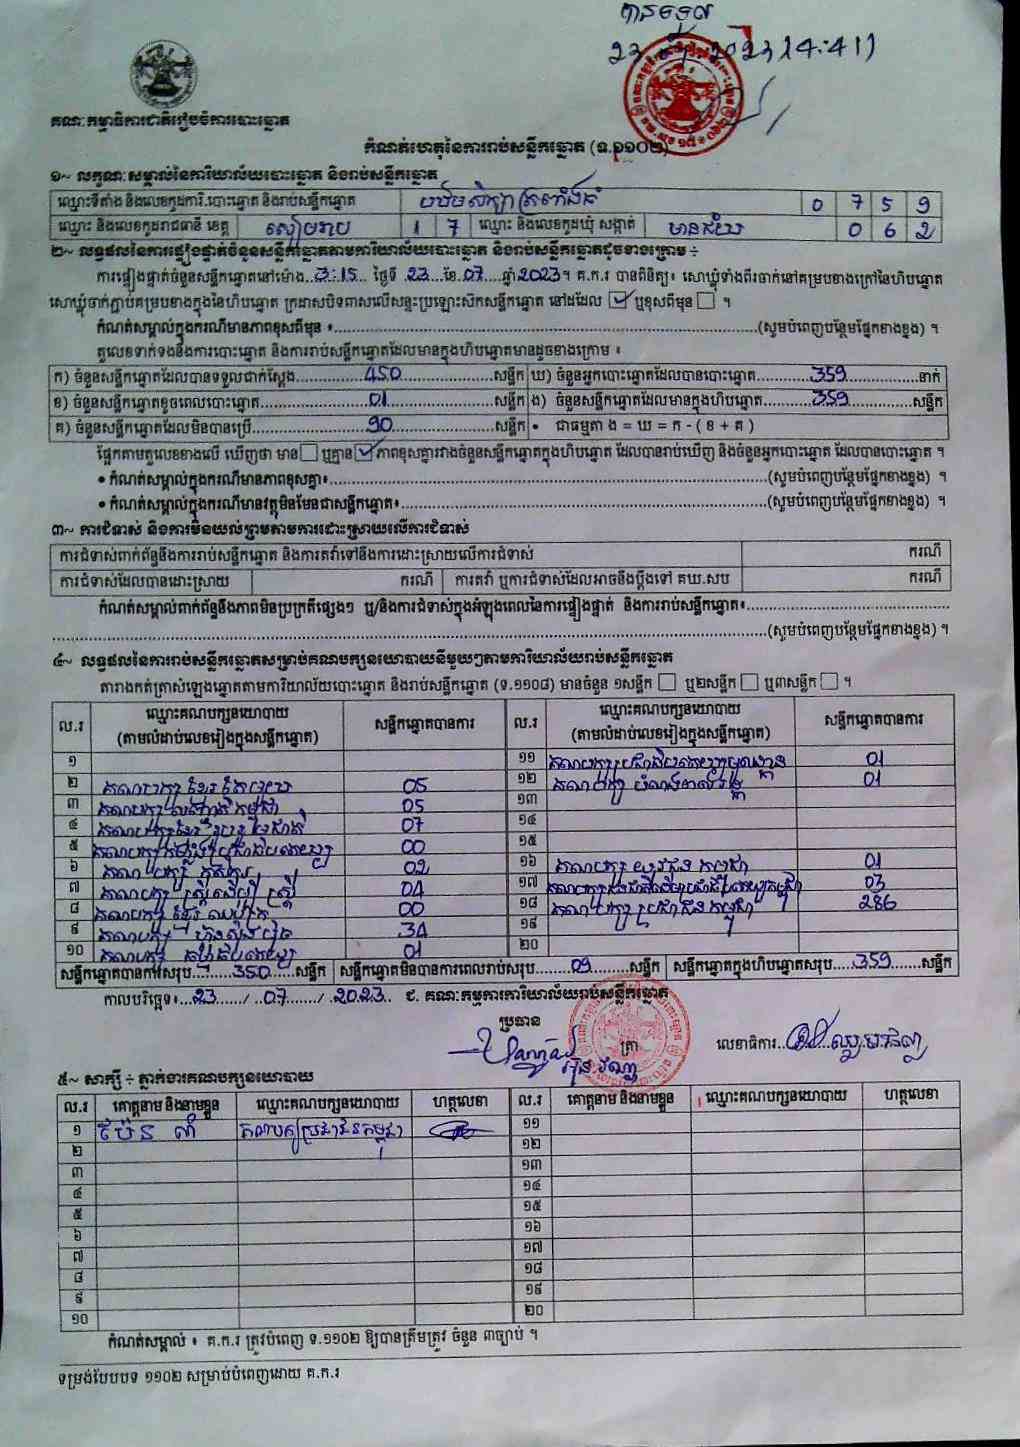 បានទទួល
23 2023 14:41
គណៈកម្មាធិការជាតិរៀបចំការបោះឆ្នោត
កំណត់ហេតុនៃការរាប់សន្លឹកឆ្នោត (ទ.១១០២)
១~ លក្ខណៈសម្គាល់នៃការិយាល័យបោះឆ្នោត និងរាប់សន្លឹកឆ្នោត
ឈ្មោះទីតាំង និងលេខកូដការិ.បោះឆ្នោត និងរាប់សន្លឹកឆ្នោត 0 7 5 9
ឈ្មោះ និងលេខកូដរាជធានី ខេត្ត សៀមរាប 1 7 ឈ្មោះ និងលេខកូដឃុំ សង្កាត់ មានជ័យ 0 6 2
២~ លទ្ធផលនៃការផ្ទៀងផ្ទាត់ចំនួនសន្លឹកឆ្នោតតាមការិយាល័យបោះឆ្នោត និងរាប់សន្លឹកឆ្នោតដូចខាងក្រោម ៖
ការផ្ទៀងផ្ទាត់ចំនួនសន្លឹកឆ្នោតនៅម៉ោង..3:15.. ថ្ងៃទី 23 ខែ.07 ឆ្នាំ2023។ គ.ក.រ បានពិនិត្យ៖ សោឃ្លុំទាំងពីរចាក់នៅគម្របខាងក្រៅនៃហិបឆ្នោត
សោឃ្លុំចាក់ភ្ជាប់គម្របខាងក្នុងនៃហិបឆ្នោត ក្រដាសបិទពាសលើសន្ទះប្រឡោះស៊កសន្លឹកឆ្នោត នៅដដែល ☑ ឬខុសពីមុន ☐ ។
កំណត់សម្គាល់ក្នុងករណីមានភាពខុសពីមុន ៖..........(សូមបំពេញបន្ថែមផ្នែកខាងខ្នង) ។
តួលេខទាក់ទងនឹងការបោះឆ្នោត និងការរាប់សន្លឹកឆ្នោតដែលមានក្នុងហិបឆ្នោតមានដូចខាងក្រោម ៖
ក) ចំនួនសន្លឹកឆ្នោតដែលបានទទួលជាក់ស្តែង.....450.....សន្លឹក ឃ) ចំនួនអ្នកបោះឆ្នោតដែលបានបោះឆ្នោត.....359.....នាក់
ខ) ចំនួនសន្លឹកឆ្នោតខូចពេលបោះឆ្នោត.....01.....សន្លឹក ង) ចំនួនសន្លឹកឆ្នោតដែលមានក្នុងហិបឆ្នោត.....359.....សន្លឹក
គ) ចំនួនសន្លឹកឆ្នោតដែលមិនបានប្រើ.....90.....សន្លឹក • ជាធម្មតា ង = ឃ = ក - ( ខ + គ )
ផ្អែកតាមតួលេខខាងលើ ឃើញថា មាន☐ ឬគ្មាន☑ភាពខុសគ្នារវាងចំនួនសន្លឹកឆ្នោតក្នុងហិបឆ្នោត ដែលបានរាប់ឃើញ និងចំនួនអ្នកបោះឆ្នោត ដែលបានបោះឆ្នោត ។
• កំណត់សម្គាល់ក្នុងករណីមានភាពខុសគ្នា៖..........(សូមបំពេញបន្ថែមផ្នែកខាងខ្នង) ។
• កំណត់សម្គាល់ក្នុងករណីមានវត្ថុមិនមែនជាសន្លឹកឆ្នោត៖..........(សូមបំពេញបន្ថែមផ្នែកខាងខ្នង) ។
៣~ ការជំទាស់ និងការមិនយល់ព្រមតាមការដោះស្រាយលើការជំទាស់
ការជំទាស់ពាក់ព័ន្ធនឹងការរាប់សន្លឹកឆ្នោត និងការតវ៉ាទៅនឹងការដោះស្រាយលើការជំទាស់ ករណី
ការជំទាស់ដែលបានដោះស្រាយ ករណី ការតវ៉ា ឬការជំទាស់ដែលអាចនឹងប្តឹងទៅ គឃ.សប ករណី
កំណត់សម្គាល់ពាក់ព័ន្ធនឹងភាពមិនប្រក្រតីផ្សេងៗ ឬ/និងការជំទាស់ក្នុងអំឡុងពេលនៃការផ្ទៀងផ្ទាត់ និងការរាប់សន្លឹកឆ្នោត៖..........
..........(សូមបំពេញបន្ថែមផ្នែកខាងខ្នង) ។
៤~ លទ្ធផលនៃការរាប់សន្លឹកឆ្នោតសម្រាប់គណបក្សនយោបាយនីមួយៗតាមការិយាល័យរាប់សន្លឹកឆ្នោត
តារាងកត់ត្រាសំឡេងឆ្នោតតាមការិយាល័យបោះឆ្នោត និងរាប់សន្លឹកឆ្នោត (ទ.១១០៨) មានចំនួន ១សន្លឹក ☐ ឬ២សន្លឹក ☐ ឬ៣សន្លឹក ☐ ។
ល.រ ឈ្មោះគណបក្សនយោបាយ (តាមលំដាប់លេខរៀងក្នុងសន្លឹកឆ្នោត) សន្លឹកឆ្នោតបានការ ល.រ ឈ្មោះគណបក្សនយោបាយ (តាមលំដាប់លេខរៀងក្នុងសន្លឹកឆ្នោត) សន្លឹកឆ្នោតបានការ
១ ១១ គណបក្ស 01
២ គណបក្ស ខ្មែរ 05 ១២ គណបក្ស 01
៣ គណបក្ស កម្ពុជា 05 ១៣
៤ គណបក្សខ្មែរ 07 ១៤
៥ គណបក្សកម្លាំងប្រជាធិបតេយ្យ 00 ១៥
៦ គណបក្ស កសិករ 02 ១៦ គណបក្ស យុវជន កម្ពុជា 01
៧ គណបក្ស ស្ត្រីដើម្បី ស្ត្រី 04 ១៧ គណបក្ស 03
៨ គណបក្ស ខ្មែរ 00 ១៨ គណបក្ស ប្រជាជន កម្ពុជា 286
៩ គណបក្ស ហ្វ៊ុនស៊ិនប៉ិច 34 ១៩
១០ គណបក្ស 01 ២០
សន្លឹកឆ្នោតបានការសរុប.....350.....សន្លឹក សន្លឹកឆ្នោតមិនបានការពេលរាប់សរុប.....09.....សន្លឹក សន្លឹកឆ្នោតក្នុងហិបឆ្នោតសរុប.....359.....សន្លឹក
កាលបរិច្ឆេទ៖..23../..07../..2023.. ជ. គណៈកម្មការការិយាល័យរាប់សន្លឹកឆ្នោត
ប្រធាន
ត្រា លេខាធិការ
៥~ សាក្សី ៖ ភ្នាក់ងារគណបក្សនយោបាយ
ល.រ គោត្តនាម និងនាមខ្លួន ឈ្មោះគណបក្សនយោបាយ ហត្ថលេខា ល.រ គោត្តនាម និងនាមខ្លួន ឈ្មោះគណបក្សនយោបាយ ហត្ថលេខា
១ គណបក្សប្រជាជនកម្ពុជា ១១
២ ១២
៣ ១៣
៤ ១៤
៥ ១៥
៦ ១៦
៧ ១៧
៨ ១៨
៩ ១៩
១០ ២០
កំណត់សម្គាល់ ៖ គ.ក.រ ត្រូវបំពេញ ទ.១១០២ ឱ្យបានត្រឹមត្រូវ ចំនួន ៣ច្បាប់ ។
ទម្រង់បែបបទ ១១០២ សម្រាប់បំពេញដោយ គ.ក.រ